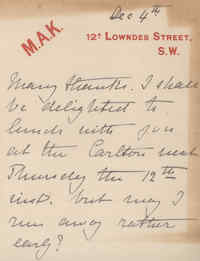 Dec 4th
M.A.K.
12A LOWNDES STREET,
S.W.
Many thanks. I shall
be delighted to
lunch with you
at the Carlton next
Thursday the 12th
inst. but may I
run away rather
early?